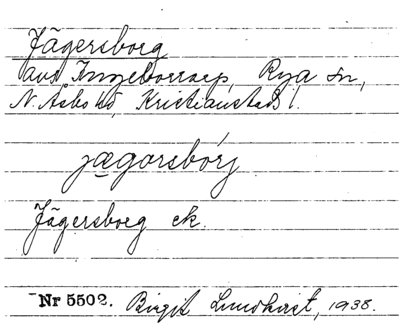 Jägersborg
avs Ingeborrarp, Rya sn,
N. Åsbo hd, Kristianstads l.
jægorsbórj
Jägersborg ek.
Nr 5502. Birgit Lundkvist, 1938.